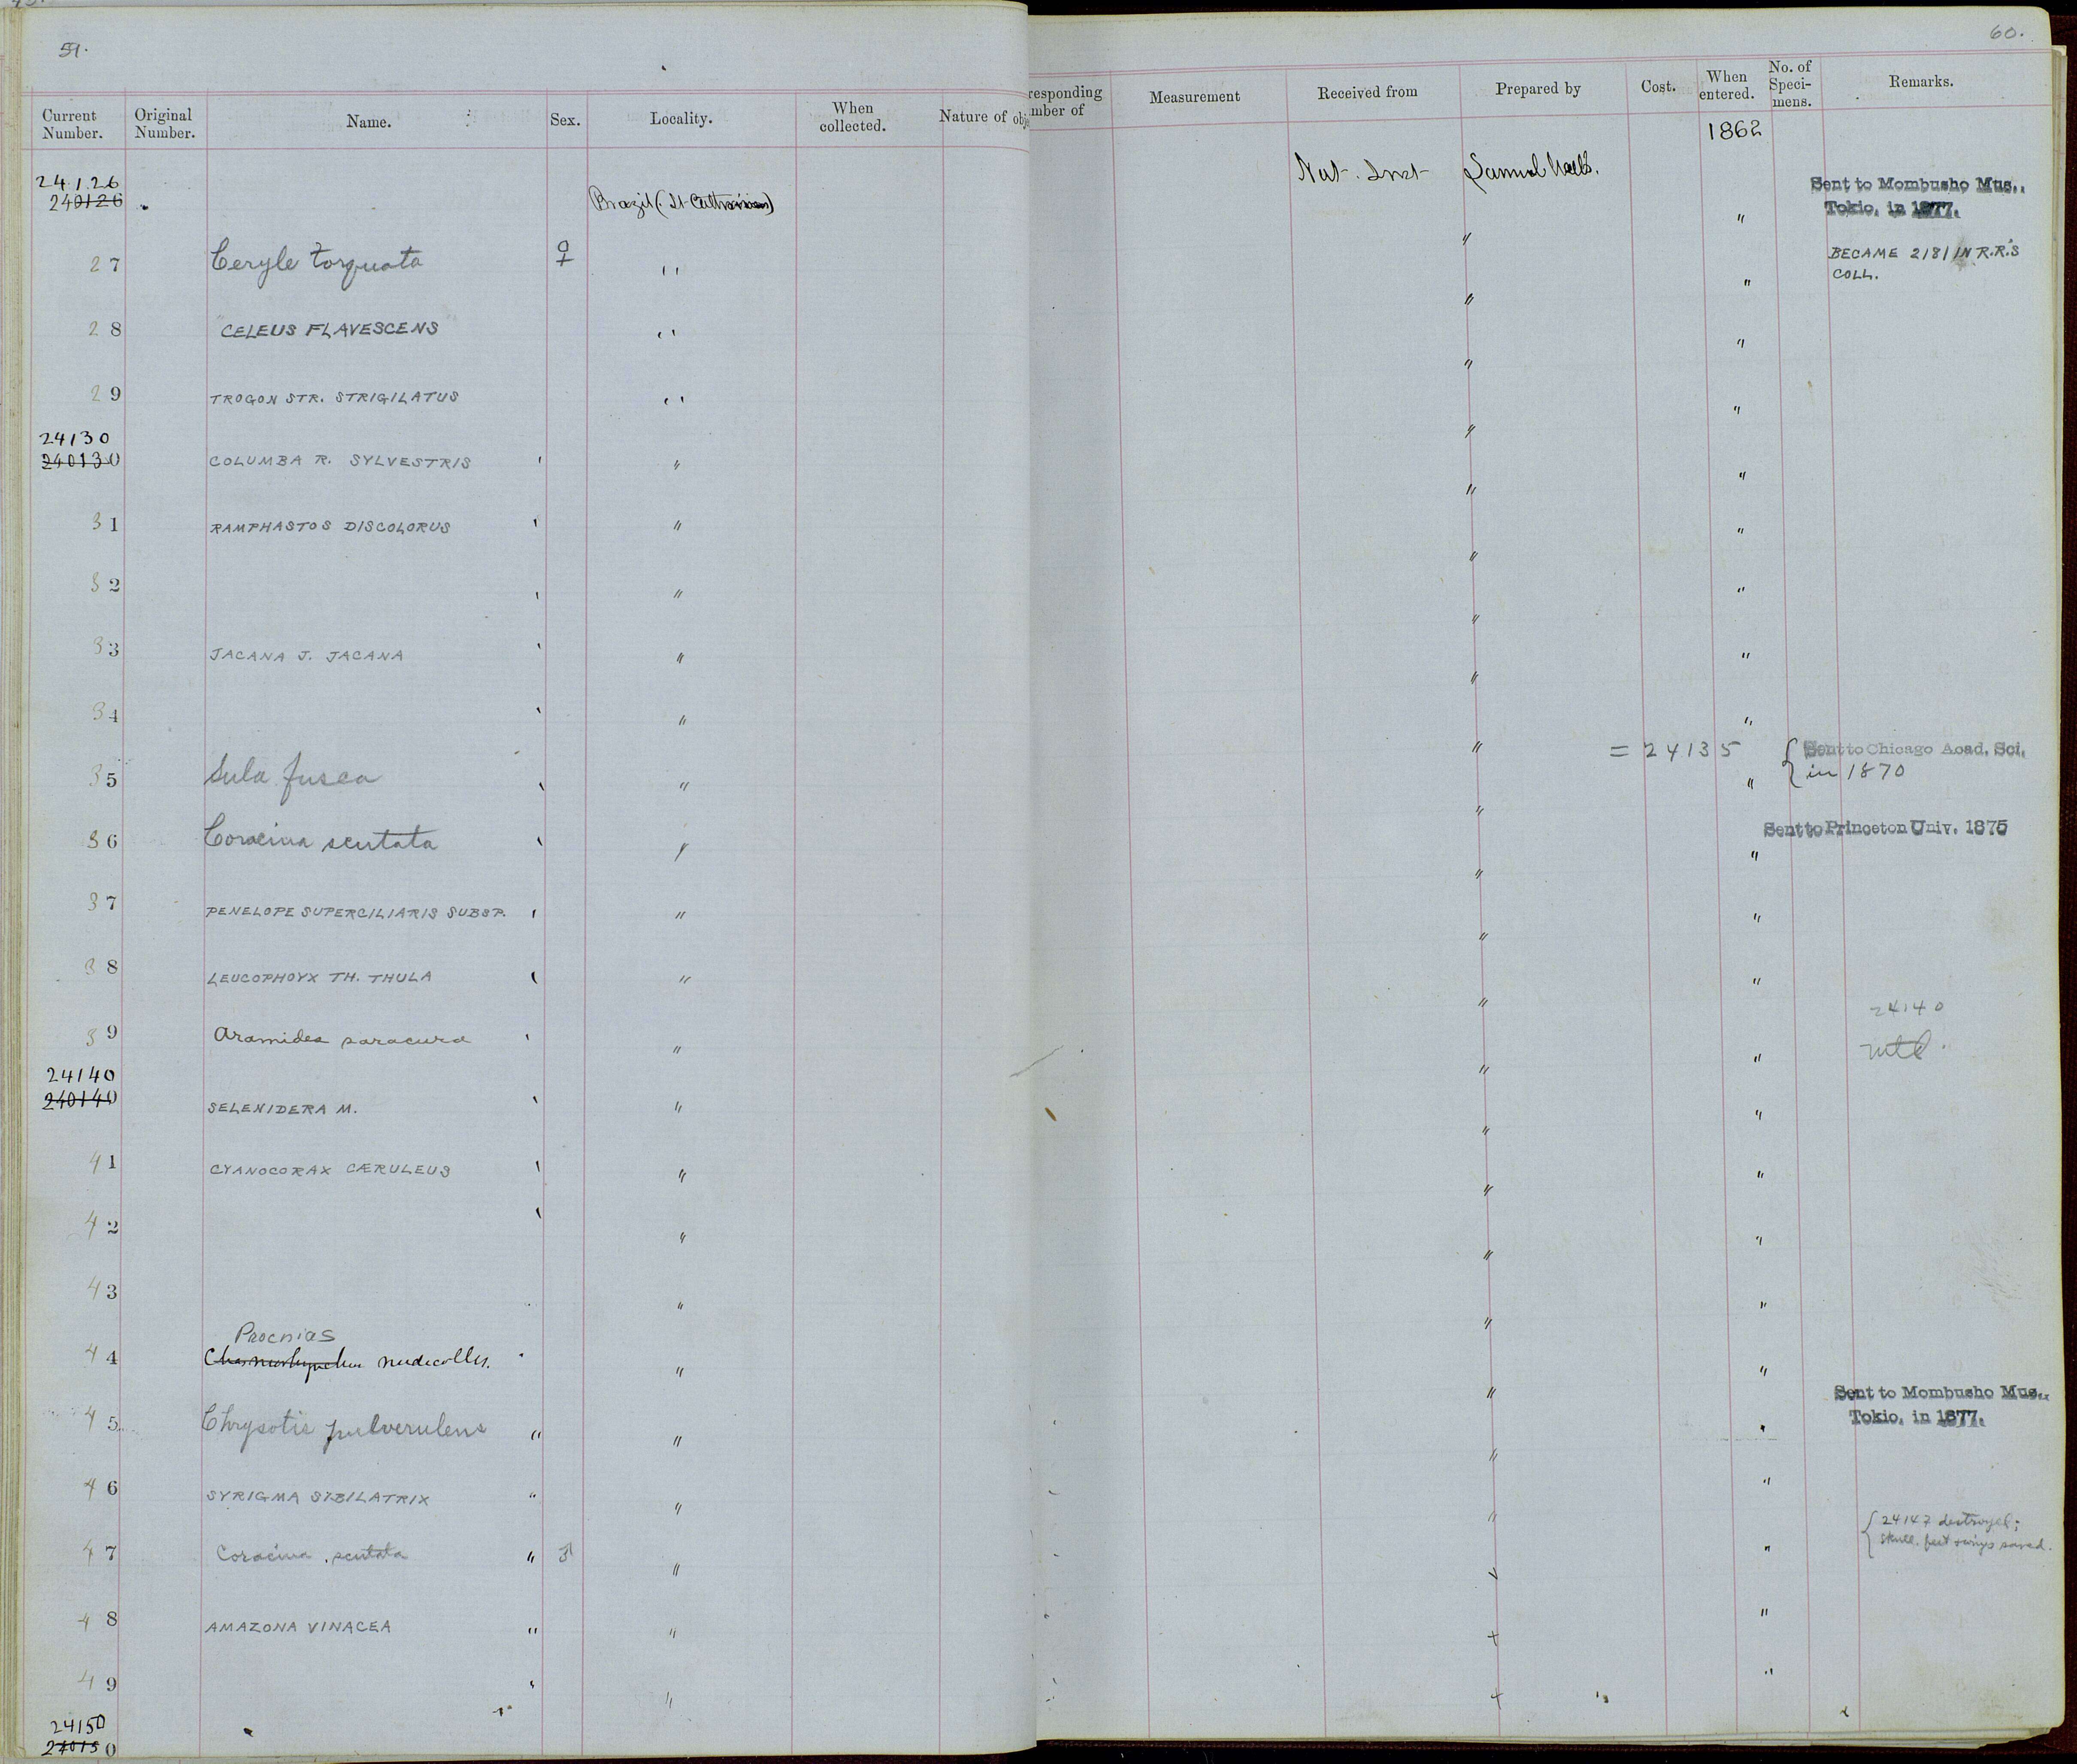 59.
60.
Current Number.
Original Number.
Name.
Sex.
Locality.
When collected.
Nature of obje
responding
mber of
Measurement
Received from
Prepared by
Cost.
When entered.
No. of Speci-mens.
Remarks.
1862
24126
240126
Brazil (St
Nat. Inst
Samuel
"
"
Sent to Mombusho Mus.,
Tokio, in 1877.
27 Ceryle torquata ♀ " " "
BECAME 2181 IN R.R.'S
COLL.
28 CELEUS FLAVESCENS " " "
29 TROGON STR. STRIGILATUS " " "
24130
240130 COLUMBA R. SYLVESTRIS " " "
31 RAMPHASTOS DISCOLORUS " " "
32 " " "
33 JACANA J. JACANA " " "
34 " " "
35 Sula fusca " " = 24135 "
Sent to Chicago Acad. Sci.
in 1870
36 Coracina scutata " " "
Sent to Princeton Univ. 1875
37 PENELOPE SUPERCILIARIS SUBSP. " " "
38 LEUCOPHOYX TH. THULA " " "
24140
39 Aramides saracura " " "
24140
240140 SELENIDERA M. " " "
41 CYANOCORAX CÆRULEUS " " "
42 " " "
43 " " "
Procnias
44 Chasmorhynchus nudicollis. " " "
45 Chrysotis pulverulens " " " "
Sent to Mombusho Mus.,
Tokio, in 1877.
46 SYRIGMA SIBILATRIX " " " "
47 Coracina scutata " ♂ " "
24147 destroyed;
skull, feet & wings saved.
48 AMAZONA VINACEA " " "
49 " "
24150
240150